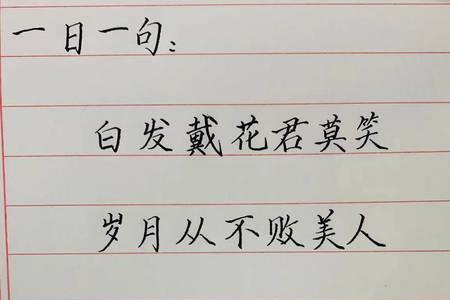 一日一句：
白发戴花君莫笑
岁月从不败美人